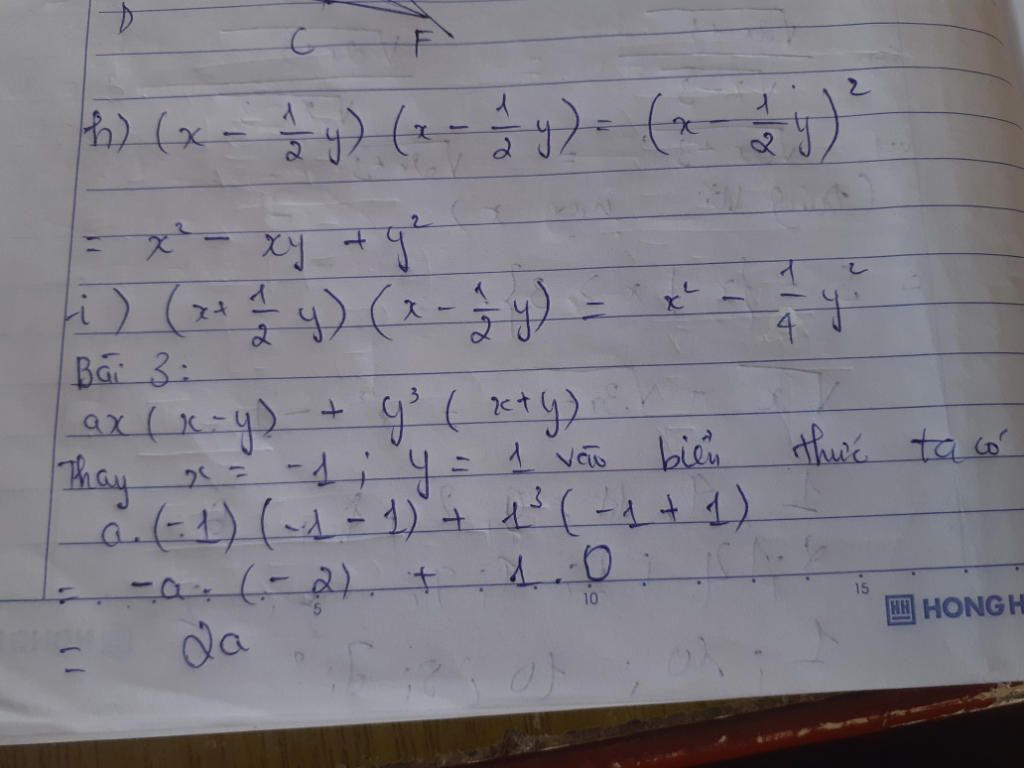 D
C F
h) (x - 1/2 y) (x - 1/2 y) = (x - 1/2 y)²
= x² - xy + y²
i) (x + 1/2 y) (x - 1/2 y) = x² - 1/4 y²
Bài 3:
ax (x - y) + y³ (x + y)
Thay x = -1 ; y = 1 vào biểu thức ta có
a. (-1) (-1 - 1) + 1³ (-1 + 1)
= -a . (-2) + 1 . 0
5 10 15
HH HONG H
= 2a